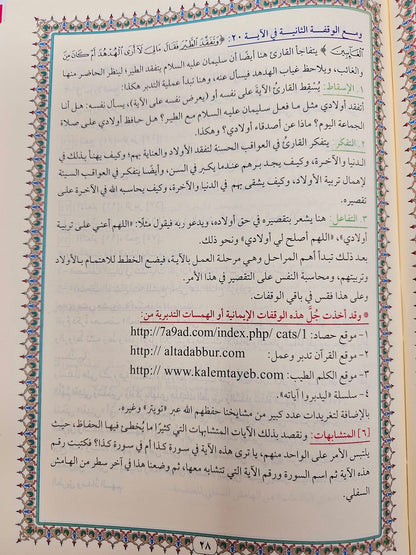 ومع الوقفة الثانية في الآية ٢٠: ﴿وَتَفَقَّدَ ٱلطَّيْرَ فَقَالَ مَالِيَ لَآ أَرَى ٱلْهُدْهُدَ أَمْ كَانَ مِنَ
ٱلْغَآئِبِينَ﴾ يتفاجأ القارئ هنا أيضًا أن سليمان عليه السلام يتفقد الطير؛ لينظر الحاضر منها
والغائب، ويلاحظ غياب الهدهد فيسأل عنه، وهنا تبدأ عملية التدبر هكذا:
١. الإسقاط: يُسْقِط القارئ الآية على نفسه أو (يعرض نفسه على الآية)، يسأل نفسه: هل أنا
أتفقد أولادي مثل ما فعل سليمان عليه السلام مع الطير؟ هل حافظ أولادي على صلاة
الجماعة اليوم؟ ماذا عن أصدقاء أولادي؟ وهكذا.
٢. التفكر: يتفكر القارئ في العواقب الحسنة لتفقد الأولاد والعناية بهم؟ وكيف يهنأ بذلك في
الدنيا والآخرة، وكيف يجد برهم عندما يكبر في السن، وأيضًا يتفكر في العواقب السيئة
لإهمال تربية الأولاد، وكيف يشقى بهم في الدنيا والآخرة، وكيف يحاسبه الله في الآخرة على
تقصيره.
٣. التفاعل: هنا يشعر بتقصيره في حق أولاده، ويدعو ربه فيقول مثلًا: «اللهم أعني على تربية
أولادي»، «اللهم أصلح لي أولادي» ونحو ذلك.
بعد ذلك تبدأ أهم المراحل وهي مرحلة العمل بالآية، فيضع الخطط للاهتمام بالأولاد
وتربيتهم، ومحاسبة النفس على التقصير في هذا الأمر.
وعلى هذا فقس في باقي الوقفات.
* وقد أخذت جُلَّ هذه الوقفات الإيمانية أو الهمسات التدبرية من:
١- موقع حصاد: http://7a9ad.com/index.php/ cats/1
٢- موقع القرآن تدبر وعمل: http:// altadabbur.com
٣- موقع الكلم الطيب: http:// www.kalemtayeb.com
٤- سلسلة «ليدبروا آياته».
بالإضافة لتغريدات عدد كبير من مشايخنا حفظهم الله عبر «تويتر» وغيره.
[٦] المتشابهات: ونقصد بذلك الآيات المتشابهات التي كثيرًا ما يُخطئ فيها الحفاظ، حيث
يلتبس الأمر على الواحد منهم، يا ترى هذه الآية في سورة كذا أم في سورة كذا؟ فكتبت رقم
هذه الآية ثم اسم السورة ورقم الآية التي تتشابه معها، ثم وضعنا هذا في آخر سطر من الهامش
السفلي.
٢٨